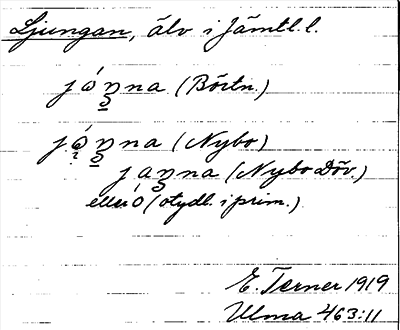 Ljungan, älv i Jämtl. l.
jȯ́n̥na (Börtn.)
jó̤n̥na (Nybo)
jan̥na (Nybo Döv.)
eller ó (otydl. i prim.)
E. Terner 1919
Ulma 463:11